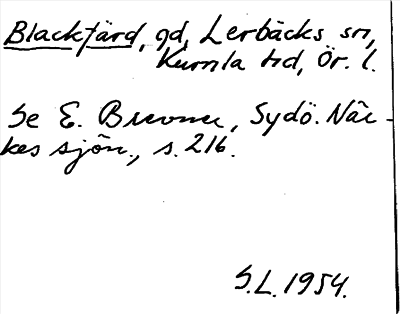 Blackfärd, gd, Lerbäcks sn,
Kumla hd, Ör. l.
Se E. Brevner, Sydö. När-
kes sjön., s. 216.
S.L. 1954.